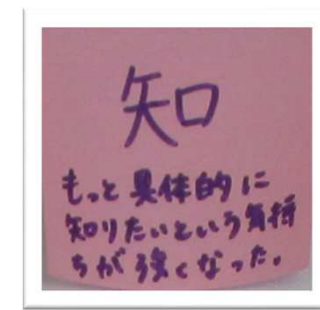 知
もっと具体的に
知りたいという気持
ちが強くなった。